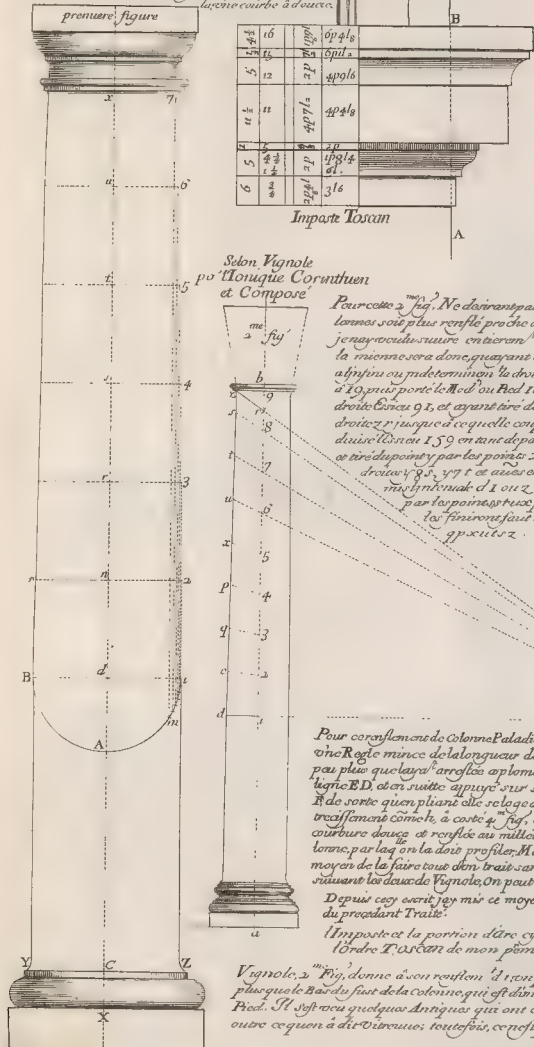 façone courbe à doucie.
premiere figure
B
4½ 16 6p4l8
1½ 15 6p1l2
5 12 2p 4p9l6
11½ 11 4p7l2 4p4l8
5 4½ 2p 1p9l4
6 2p4l8 3l6
Imposte Toscan
A
x 7
u 6
t 5
s 4
r 3
n 2
B d 1
m
A
Y C Z
X
Selon Vignole
po.r l'Ionique Corinthien
et Composé
2 me fig.
b
z 9
s r 8
t 7
u 6
x 5
p 4
q 3
c 2
d 1
a
Pour cette 2 me fig. Ne desirant pa
lonnes soit plus renflé proche d
jenay voulu suivre entierem
la mienne sera donc, quayant
alinfini ou indeterminon la dro
à 19, puis porté le Mod. ou Pied 1
droite Esieu 91, et ayant tiré d
droite z r jusque à ce quelle coup
divise l'Esieu 159 en tant de pa
et tiré du point y par les points 2
droites y8s, y7t et avec
par les points stux
les finiront faut
qpxutsz.
Pour ce renflement de Colonne Paladi
vne Regle mince de la longueur d
peu plus que laya.t arrestée aplom
ligne ED, et en suitte appuyé sur
F, de sorte qu'en pliant elle se loge
trecissement come h, à costé 4 me fig,
courbure douce et renflée au millie
lonne, par laq.lle on la doit profiler, M
moyen de la faire tout d'on trait sar
suivant les deux de Vignole, On peut
Depuis cecy escrit jay mis ce moye
du precedant Traité.
l'Imposte et la portion d'arc cy
l'Ordre Toscan de mon pem
Vignole, 2 me Fig, donne à son renflem.t d'1,
plus que le Bas du fust de la Colonne, qui est dim
Pied. Il s'est veu quelques Antiques qui ont
outre ce quon à dit Vitruve; toutefois, ce nest